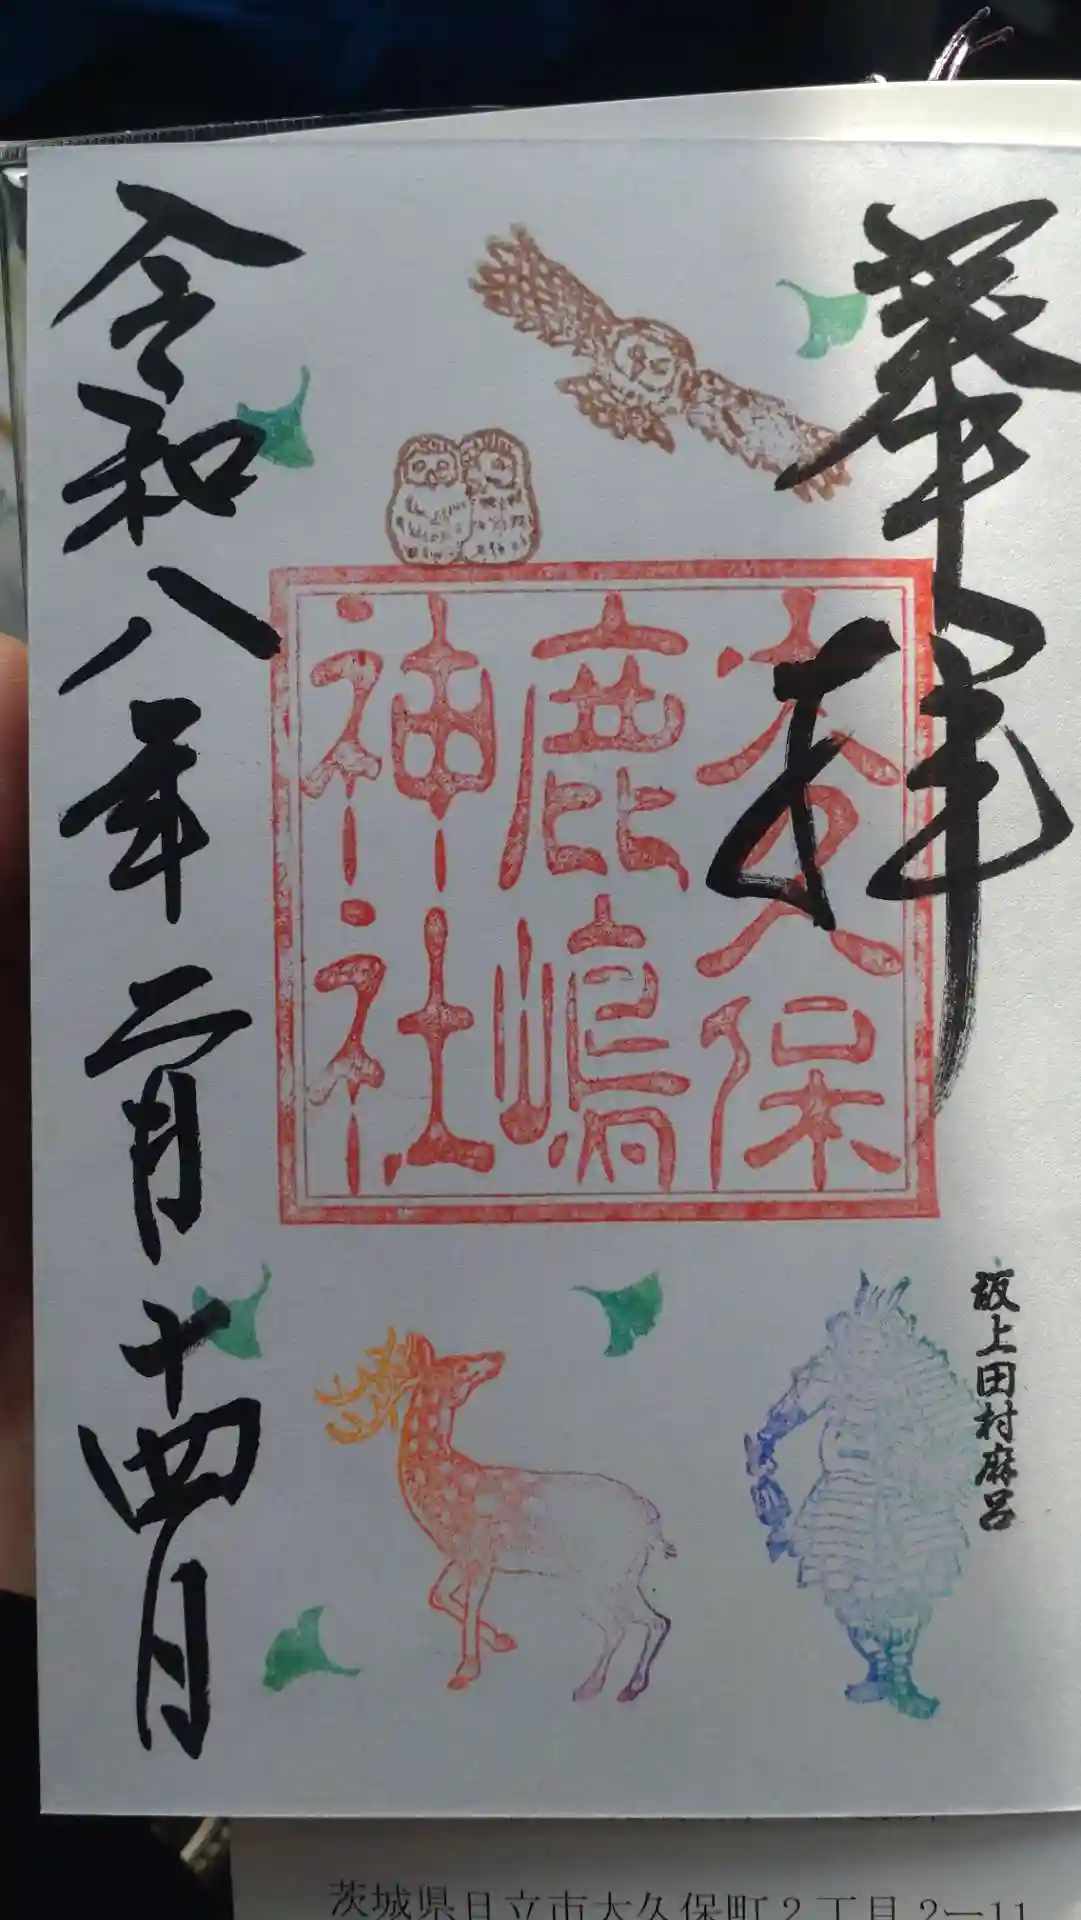 奉拝
大久保
鹿嶋
神社
坂上田村麻呂
令和八年二月十四日
茨城県日立市大久保町2丁目2-11